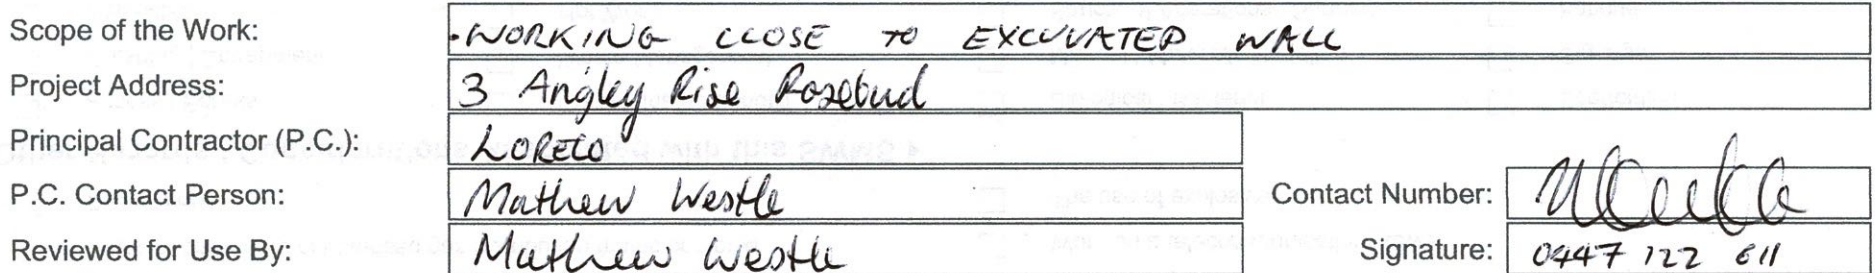 Scope of the Work: · WORKING CLOSE TO EXCUVATED WALL
Project Address: 3 Angley Rise Rosebud
Principal Contractor (P.C.): LORECO
P.C. Contact Person: Mathew Westle Contact Number:
Reviewed for Use By: Mathew Westle Signature: 0447 122 611